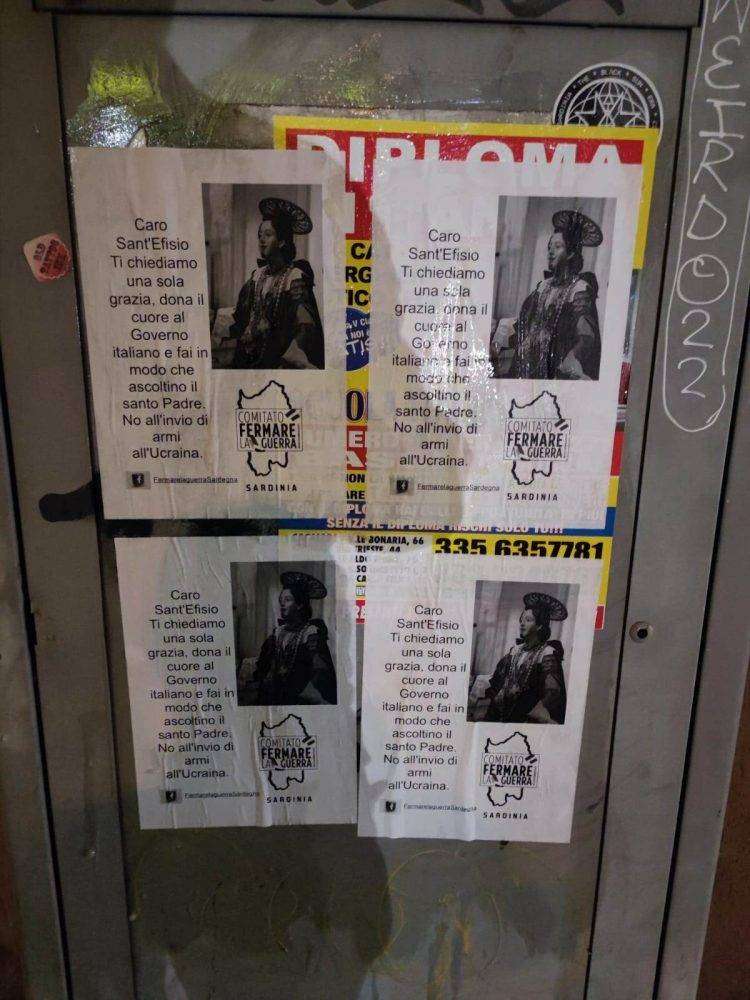 THE BLACK SUN
METRO022
OLD
DIPLOMA
Caro
Sant'Efisio
Ti chiediamo
una sola
grazia, dona il
cuore al
Governo
italiano e fai in
modo che
ascoltino il
santo Padre.
No all'invio di
armi
all'Ucraina.
COMITATO
FERMARE
LA GUERRA
FermarelaguerraSardegna
SARDINIA
Caro
Sant'Efisio
Ti chiediamo
una sola
grazia, dona il
cuore al
Governo
italiano e fai in
modo che
ascoltino il
santo Padre.
No all'invio di
armi
all'Ucraina.
COMITATO
FERMARE
LA GUERRA
FermarelaguerraSardegna
SARDINIA
SENZA IL DIPLOMA RISCHI SOLO TU!!!
BONARIA, 66
335 6357781
Caro
Sant'Efisio
Ti chiediamo
una sola
grazia, dona il
cuore al
Governo
italiano e fai in
modo che
ascoltino il
santo Padre.
No all'invio di
armi
all'Ucraina.
COMITATO
FERMARE
LA GUERRA
FermarelaguerraSardegna
SARDINIA
Caro
Sant'Efisio
Ti chiediamo
una sola
grazia, dona il
cuore al
Governo
italiano e fai in
modo che
ascoltino il
santo Padre.
No all'invio di
armi
all'Ucraina.
COMITATO
FERMARE
LA GUERRA
FermarelaguerraSardegna
SARDINIA